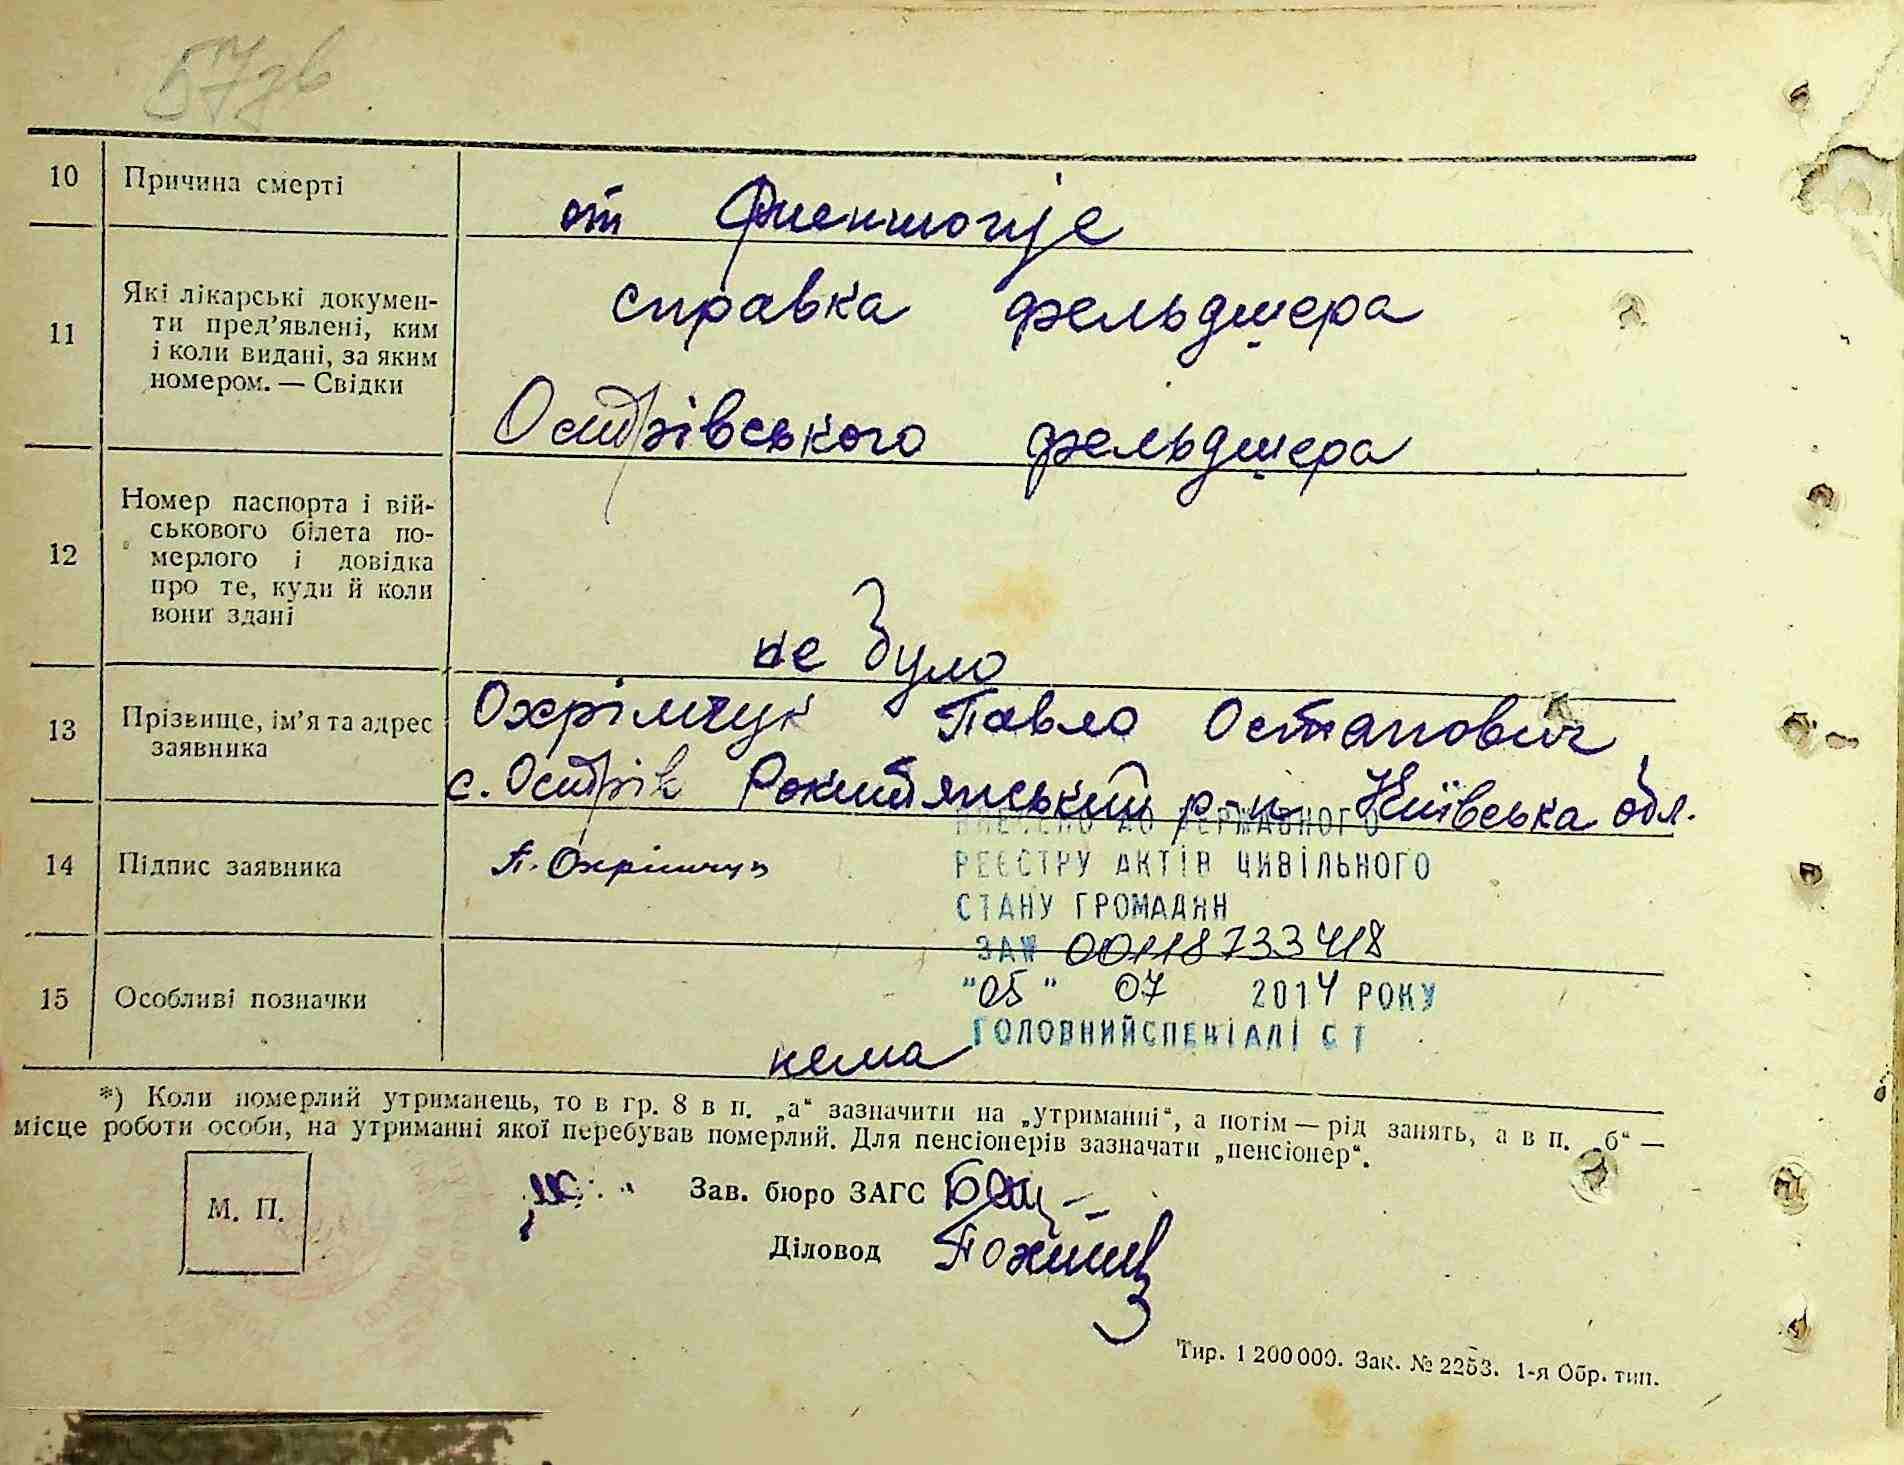 10 Причина смерті
от
11 Які лікарські докумен-
ти пред’явлені, ким
і коли видані, за яким
номером. — Свідки
справка фельдшера
Острівського фельдшера
12 Номер паспорта і вій-
ськового білета по-
мерлого і довідка
про те, куди й коли
вони здані
не було
13 Прізвище, ім’я та адрес
заявника
Охрімчук Павло Остапович
с. Острів Рокитянський р-н Київська обл.
14 Підпис заявника
П. Охрімчук
ВНЕСЕНО ДО ДЕРЖАВНОГО
РЕЄСТРУ АКТІВ ЦИВІЛЬНОГО
СТАНУ ГРОМАДЯН
ЗА№ 00118733418
"05" 07 2014 РОКУ
ГОЛОВНИЙСПЕЦІАЛІСТ
15 Особливі позначки
нема
*) Коли померлий утриманець, то в гр. 8 в п. „а“ зазначити на „утриманні“, а потім — рід занять, а в п. „б“ —
місце роботи особи, на утриманні якої перебував померлий. Для пенсіонерів зазначати „пенсіонер“.
М. П.
Зав. бюро ЗАГС
Діловод
Тир. 1 200 000. Зак. № 2253. 1-я Обр. тип.